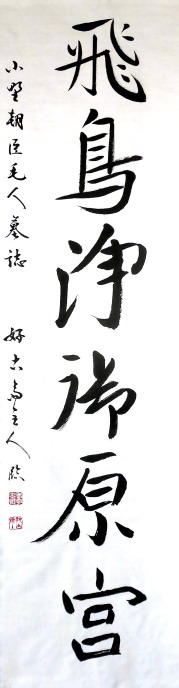 飛鳥浄御原宮
小野朝臣毛人墓誌 好古斎主人臨